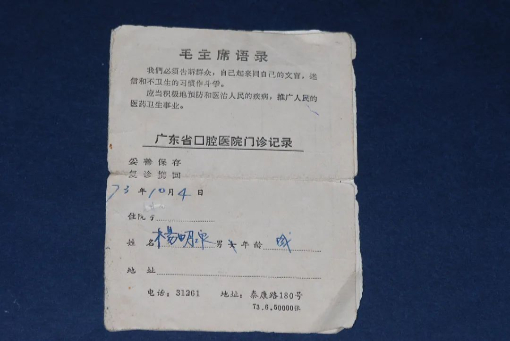 毛主席语录
我们必须告诉群众，自己起来同自己的文盲、迷
信和不卫生的习惯作斗争。
应当积极地预防和医治人民的疾病，推广人民的
医药卫生事业。
广东省口腔医院门诊记录
妥善保存
复诊携回
73年10月4日
住院号
姓名 杨明泉 男 年龄 成
地址
电话：31261 地址：泰康路180号
73.6.50000张